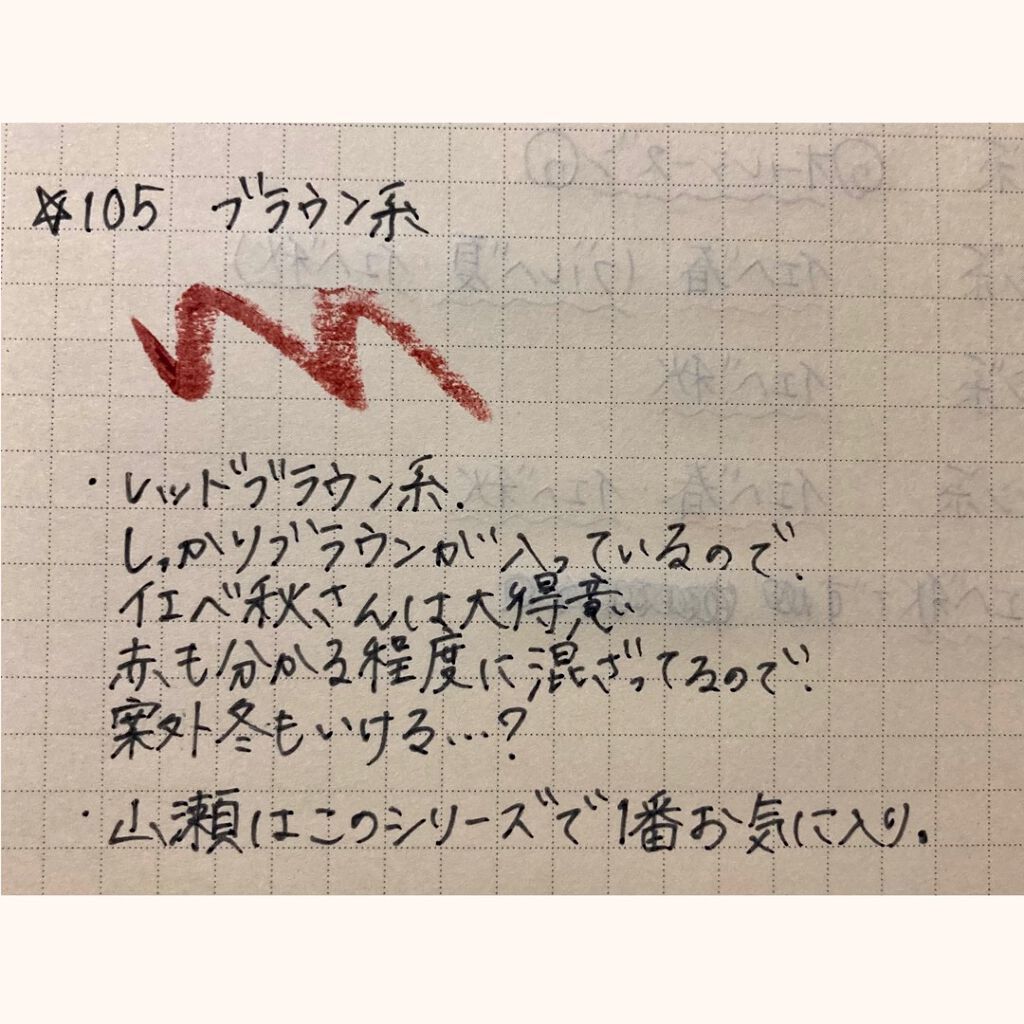 ☆105 ブラウン系
・レッドブラウン系.
しっかりブラウンが入っているので、
イエベ秋さんは大得意、
赤も分かる程度に混ざってるので、
案外冬もいける…?
・山瀬はこのシリーズで1番お気に入り。